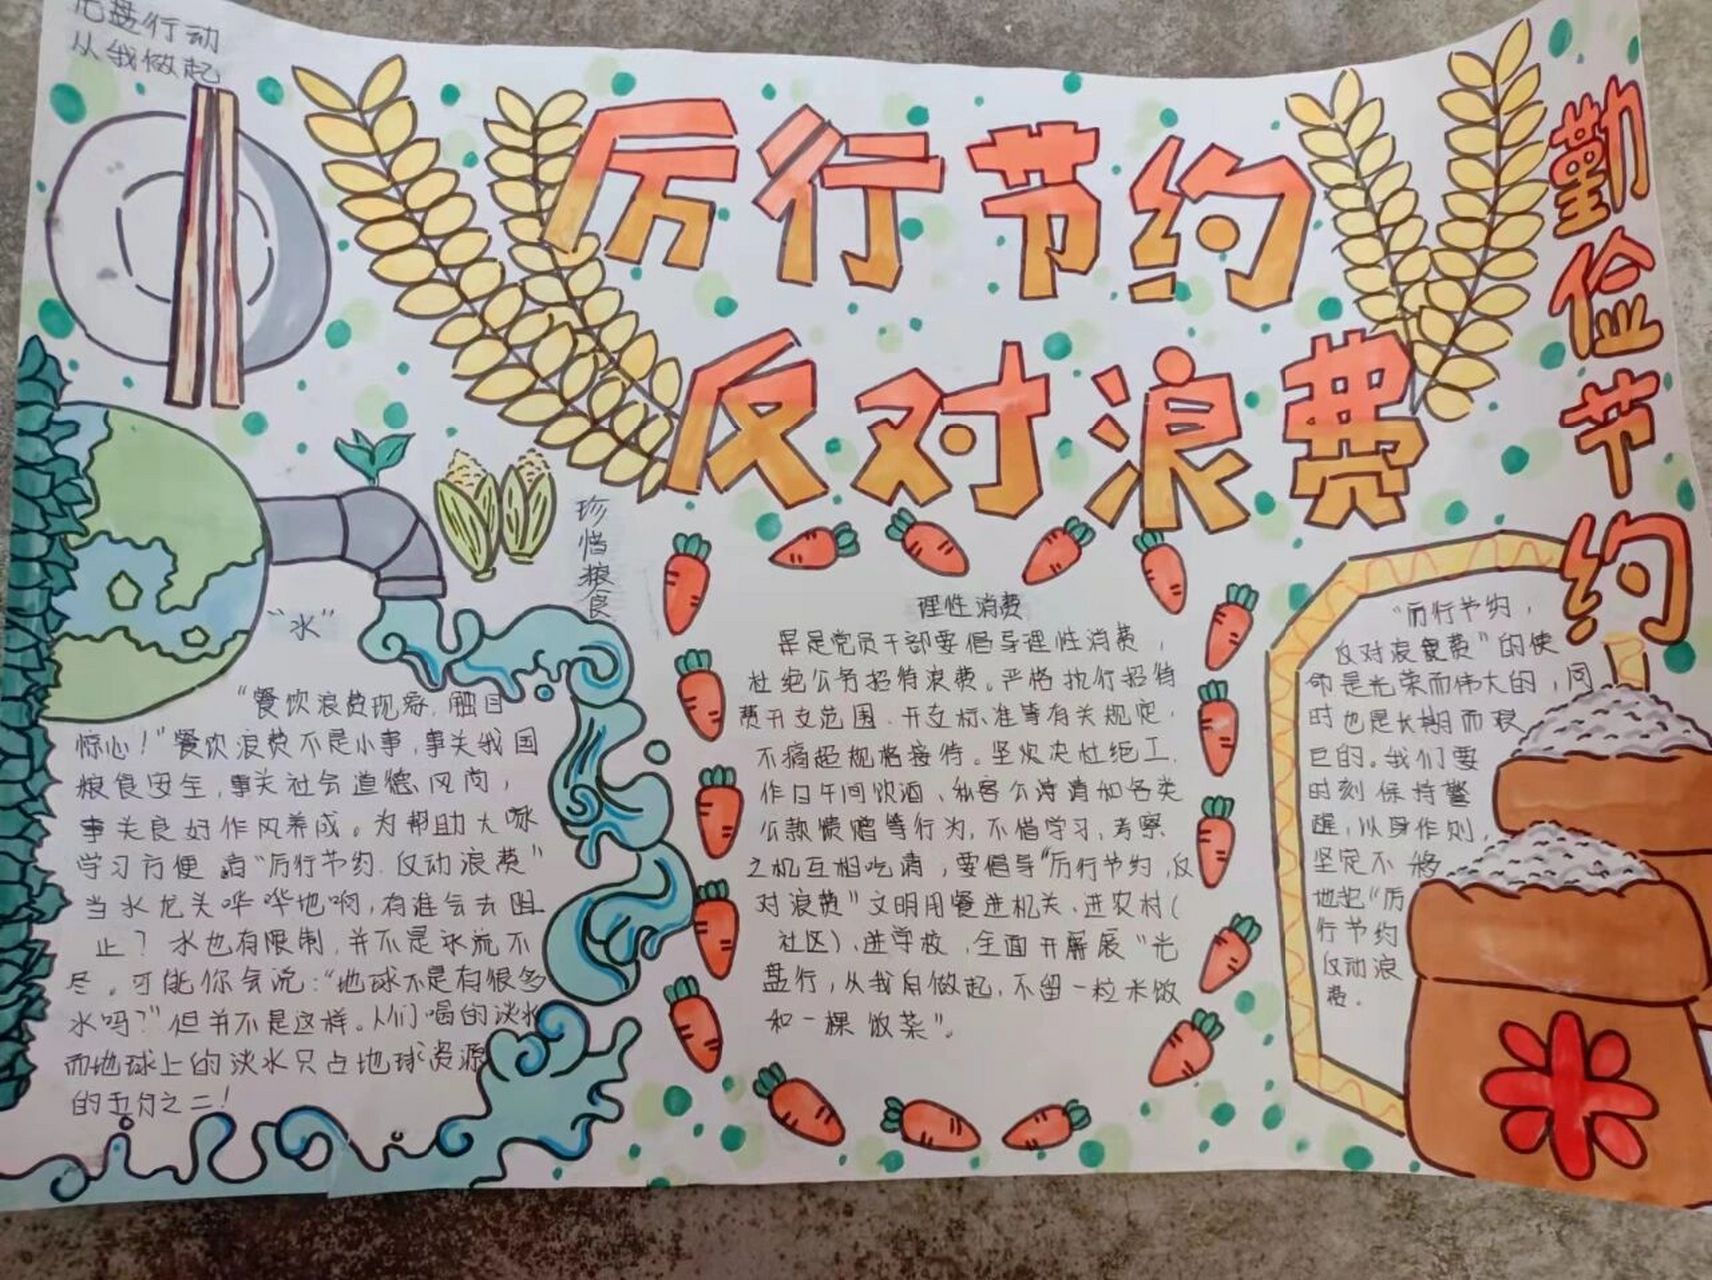 光盘行动
从我做起
厉行节约
反对浪费
勤俭节约
珍惜粮食
“水”
“餐饮浪费现象,触目
惊心!”餐饮浪费不是小事,事关我国
粮食安全,事关社会道德风尚,
事关良好作风养成。为帮助大家
学习方便
“厉行节约.反动浪费”
当水龙头哗哗地啊,有谁会去阻
止?水也有限制,并不是永流不
尽。可能你会说:“地球不是有很多
水吗?”但并不是这样。人们喝的淡水
而地球上的淡水只占地球资源
的五分之二!
理性消费
是党员干部要倡导理性消费,
杜绝公务招待浪费。严格执行招待
费开支范围、开支标准等有关规定,
不搞超规格接待。坚决杜绝工
作日午间饮酒、私客公请和各类
公款馈赠等行为,不借学习,考察
之机互相吃请,要倡导“厉行节约,反
对浪费”文明用餐进机关、进农村(
社区)、进学校,全面开展“光
盘行,从我自做起,不留一粒米饭
和一棵饭菜”。
“厉行节约,
反对浪费”的使
命是光荣而伟大的,同
时也是长期而艰
巨的。我们要
时刻保持警
醒,以身作则,
坚定不移
地把“厉
行节约
反动浪
费。
米